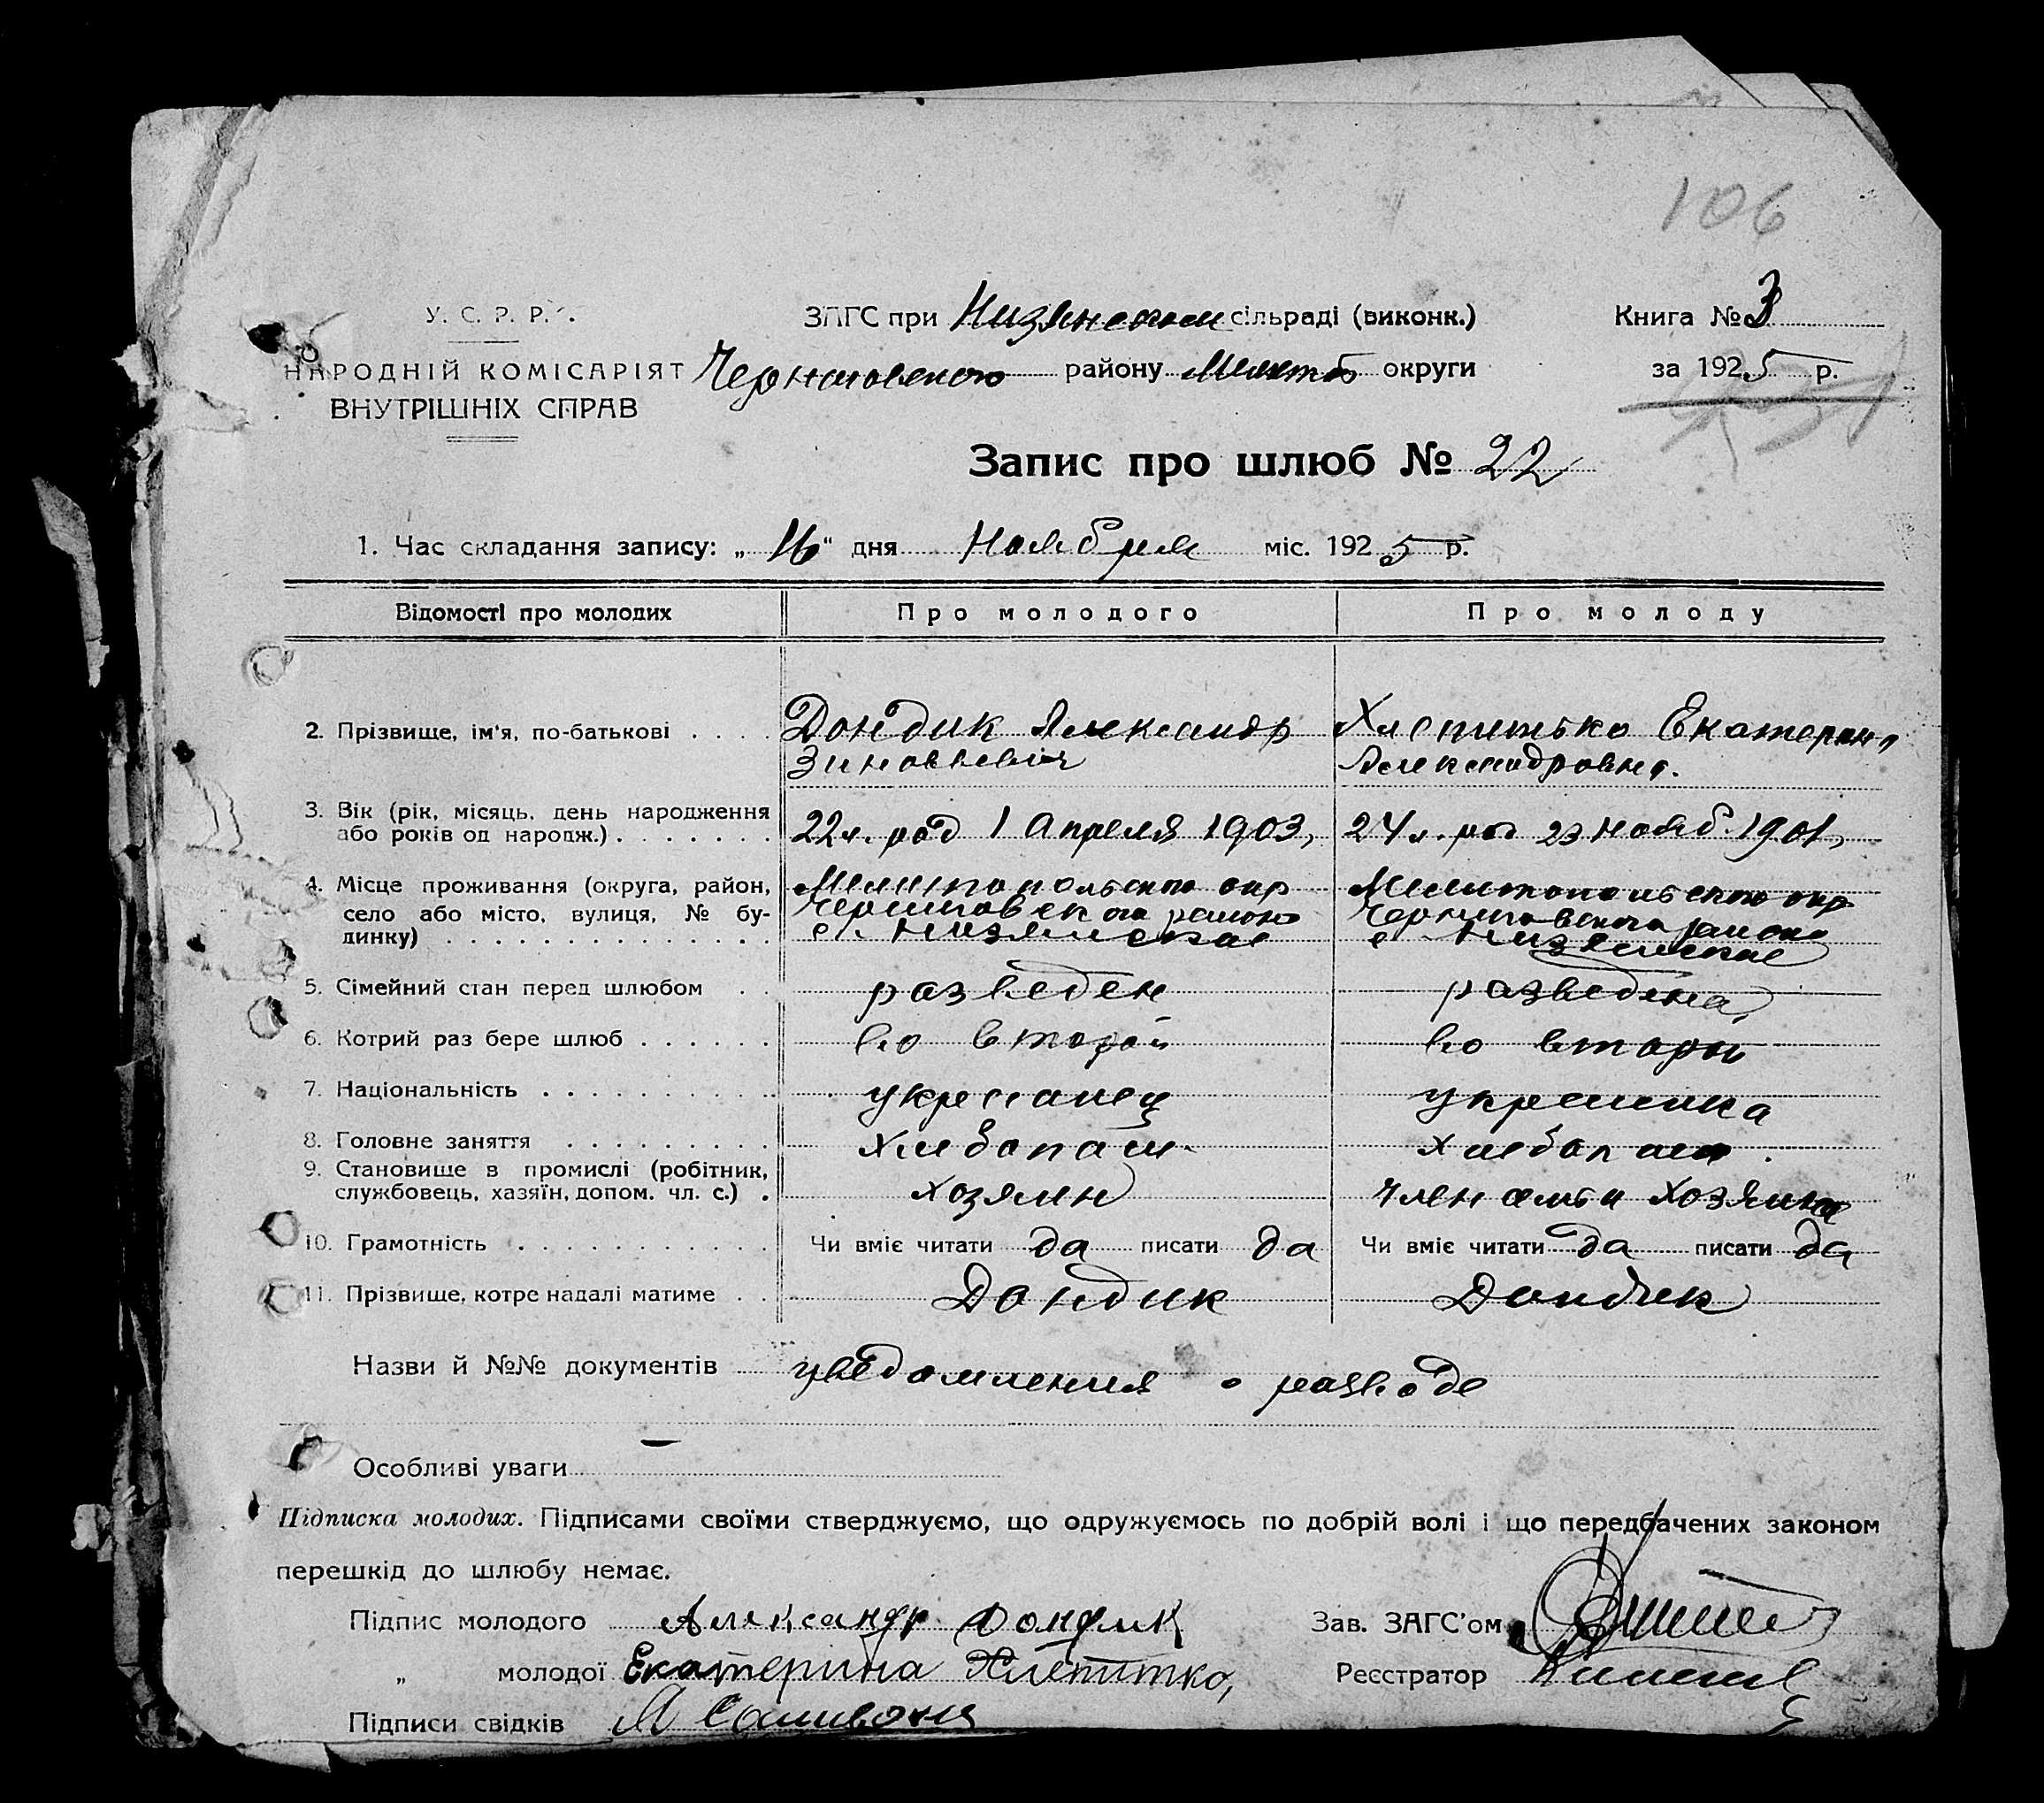 106
У. С. Р. Р.
ЗАГС при Низянском сільраді (виконк.)
Книга № 3
НАРОДНІЙ КОМІСАРІЯТ
ВНУТРІШНІХ СПРАВ
Черниговского району Мелитоп округи
за 1925 р.
Запис про шлюб № 22
1. Час складання запису: „16“ дня Ноября міс. 1925 р.
Відомості про молодих Про молодого Про молоду
2. Прізвище, ім'я, по-батькові . . . . Дондик Александр Хлепитько Екатерина
Зиновьевич Александровна.
3. Вік (рік, місяць, день народження
або років од народж.) . . . . . . . 22 л. род 1 Апреля 1903, 24 л. род 23 нояб. 1901,
4. Місце проживання (округа, район, Мелитопольского окр Мелитопольского окр
село або місто, вулиця, № бу- Черниговского района Черниговского района
динку) . . . . . . . . . . . . . . . с. Низянское с. Низянское
5. Сімейний стан перед шлюбом . . разведен разведена
6. Котрий раз бере шлюб . . . . . . во второй во второй
7. Національність . . . . . . . . . . . украинец украинка
8. Головне заняття . . . . . . . . . хлебопаш. хлебопаш.
9. Становище в промислі (робітник,
службовець, хазяїн, допом. чл. с.) . хозяин член семьи хозяина
10. Грамотність . . . . . . . . . . . Чи вміє читати да писати да Чи вміє читати да писати да
11. Прізвище, котре надалі матиме . . Дондик Дондик
Назви й №№ документів уведомления о разводе
Особливі уваги —
Підписка молодих. Підписами своїми стверджуємо, що одружуємось по добрій волі і що передбачених законом
перешкід до шлюбу немає.
Підпис молодого Александр Дондик Зав. ЗАГС'ом
„ молодої Екатерина Хлепитко, Реєстратор
Підписи свідків